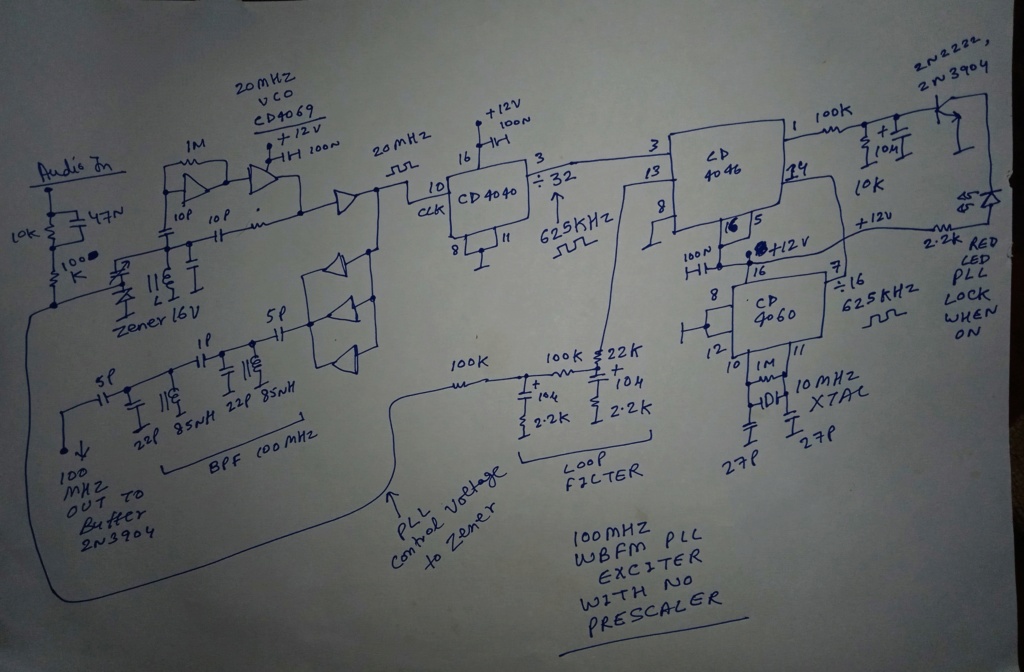 Audio In
10K
47N
100K
Zener 16V
L
10P
10P
1M
20MHZ
VCO
CD4069
+12V
100N
20MHZ
+12V
100N
16
10
CLK
CD4040
3
÷32
8
11
625KHZ
3
13
8
CD
4046
1
14
16
5
100N
+12V
100K
10K
+
10μ
2N2222,
2N3904
+12V
2.2K
RED
LED
PLL
LOCK
WHEN
ON
16
8
12
CD
4060
7
÷16
625KHZ
10
11
1M
10MHZ
XTAL
27P
27P
5P
1P
5P
22P
85NH
22P
85NH
BPF 100MHZ
100
MHZ
OUT TO
Buffer
2N3904
100K
100K
22K
+
10μ
2.2K
+
10μ
2.2K
LOOP
FILTER
PLL
control voltage
to Zener
100MHZ
WBFM PLL
EXCITER
WITH NO
PRESCALER